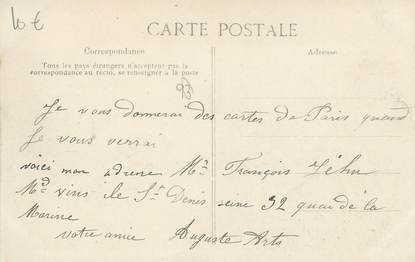 10 €
CARTE POSTALE
Correspondance
Adresse
Tous les pays étrangers n'acceptent pas la
correspondance au recto, se renseigner à la poste
93
Je vous donnerai des cartes de Paris quand
Je vous verrai
voici mon adresse Mr François
Md vins ile St Denis seine 32 quai de la
Marine
votre amie Auguste Arts